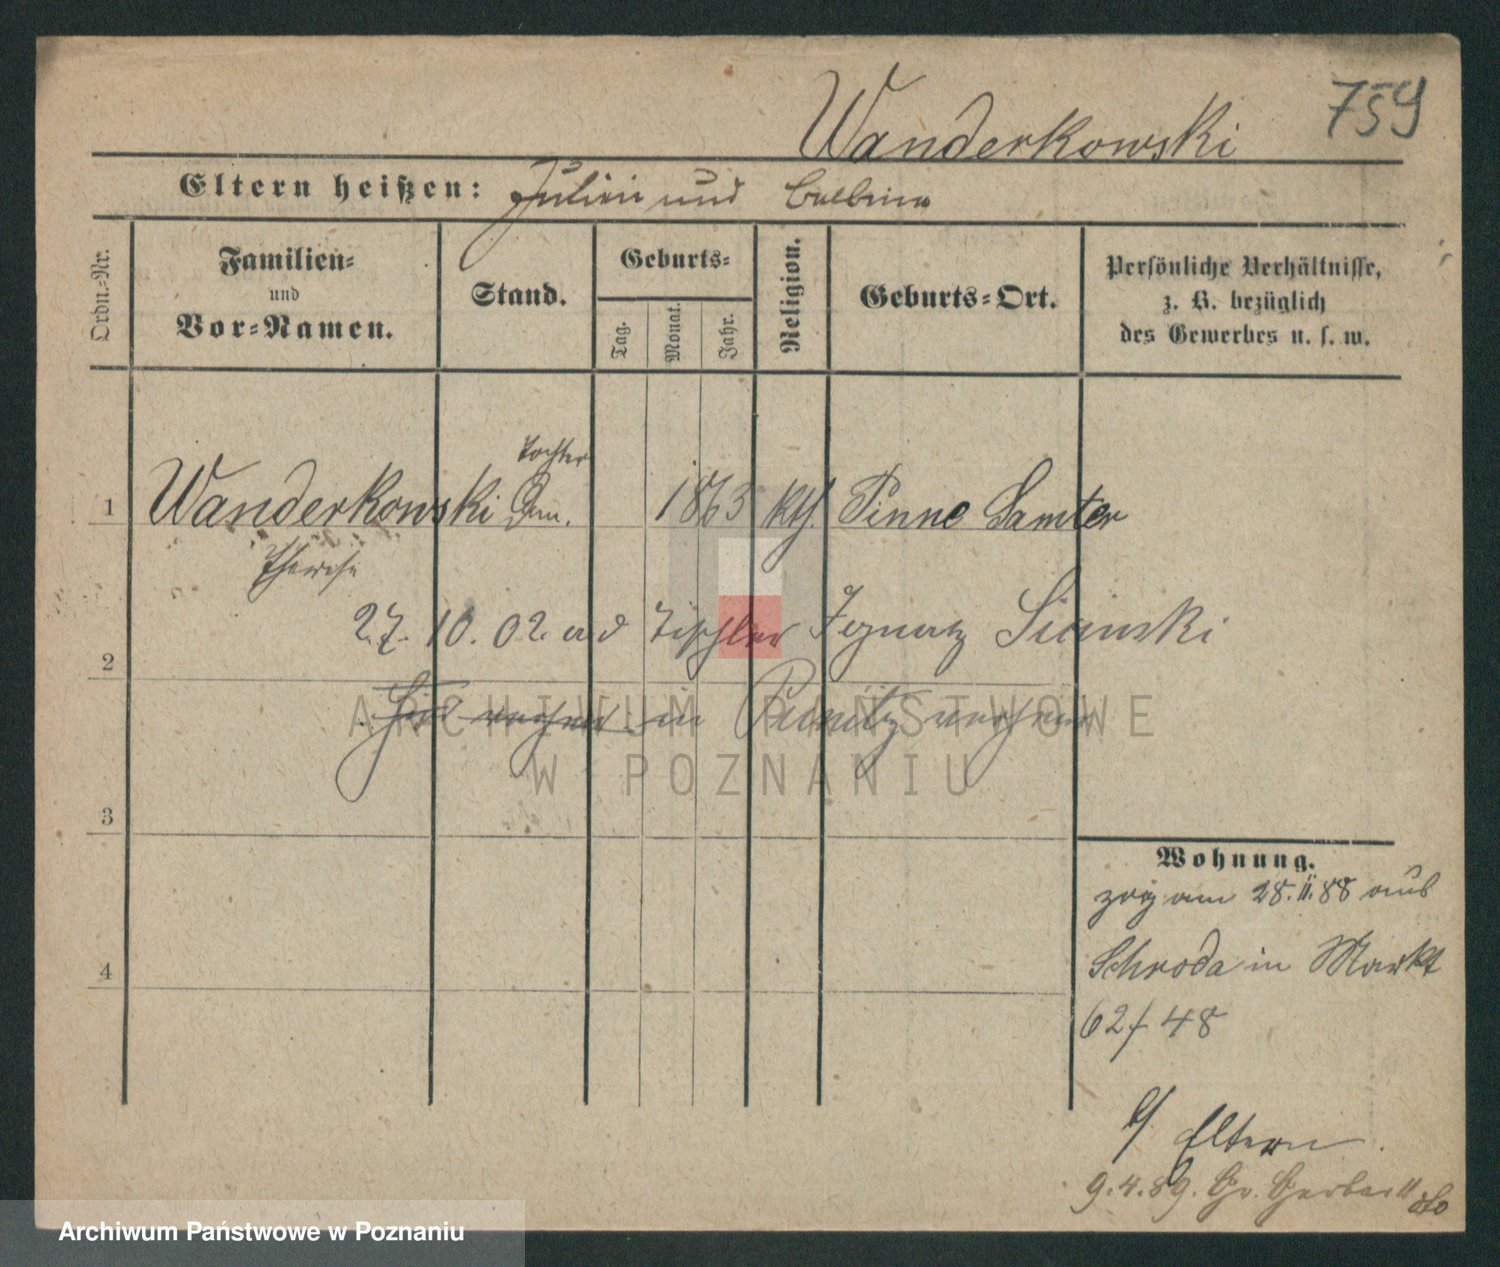 Wanderkowski
759
Eltern heißen: Julian und Balbina
Ordn.-Nr.
Familien-
und
Vor-Namen.
Stand.
Geburts-
Tag.
Monat.
Jahr.
Religion.
Geburts-Ort.
Persönliche Verhältnisse,
z. B. bezüglich
des Gewerbes u. s. w.
Tochter
1 Wanderkowski 1863 kth. Pinne Samter
Therese
27. 10. 02. Tischler Ignatz
2
in Punitz
ARCHIWUM PAŃSTWOWE
W POZNANIU
3
Wohnung.
zog am 28.II.88 aus
Schroda in Markt
4
62/48
b/ Eltern.
9.4.89. Gr. Gerber 11
Archiwum Państwowe w Poznaniu